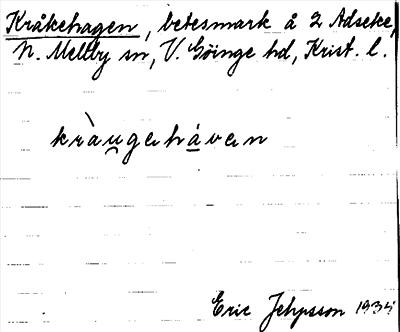 Kråkehagen, betesmark å 2 Adseke,
N. Mellby sn, V. Göinge hd, Krist. l.
kràu̲gehå̲ven
Eric Jehpsson 1934